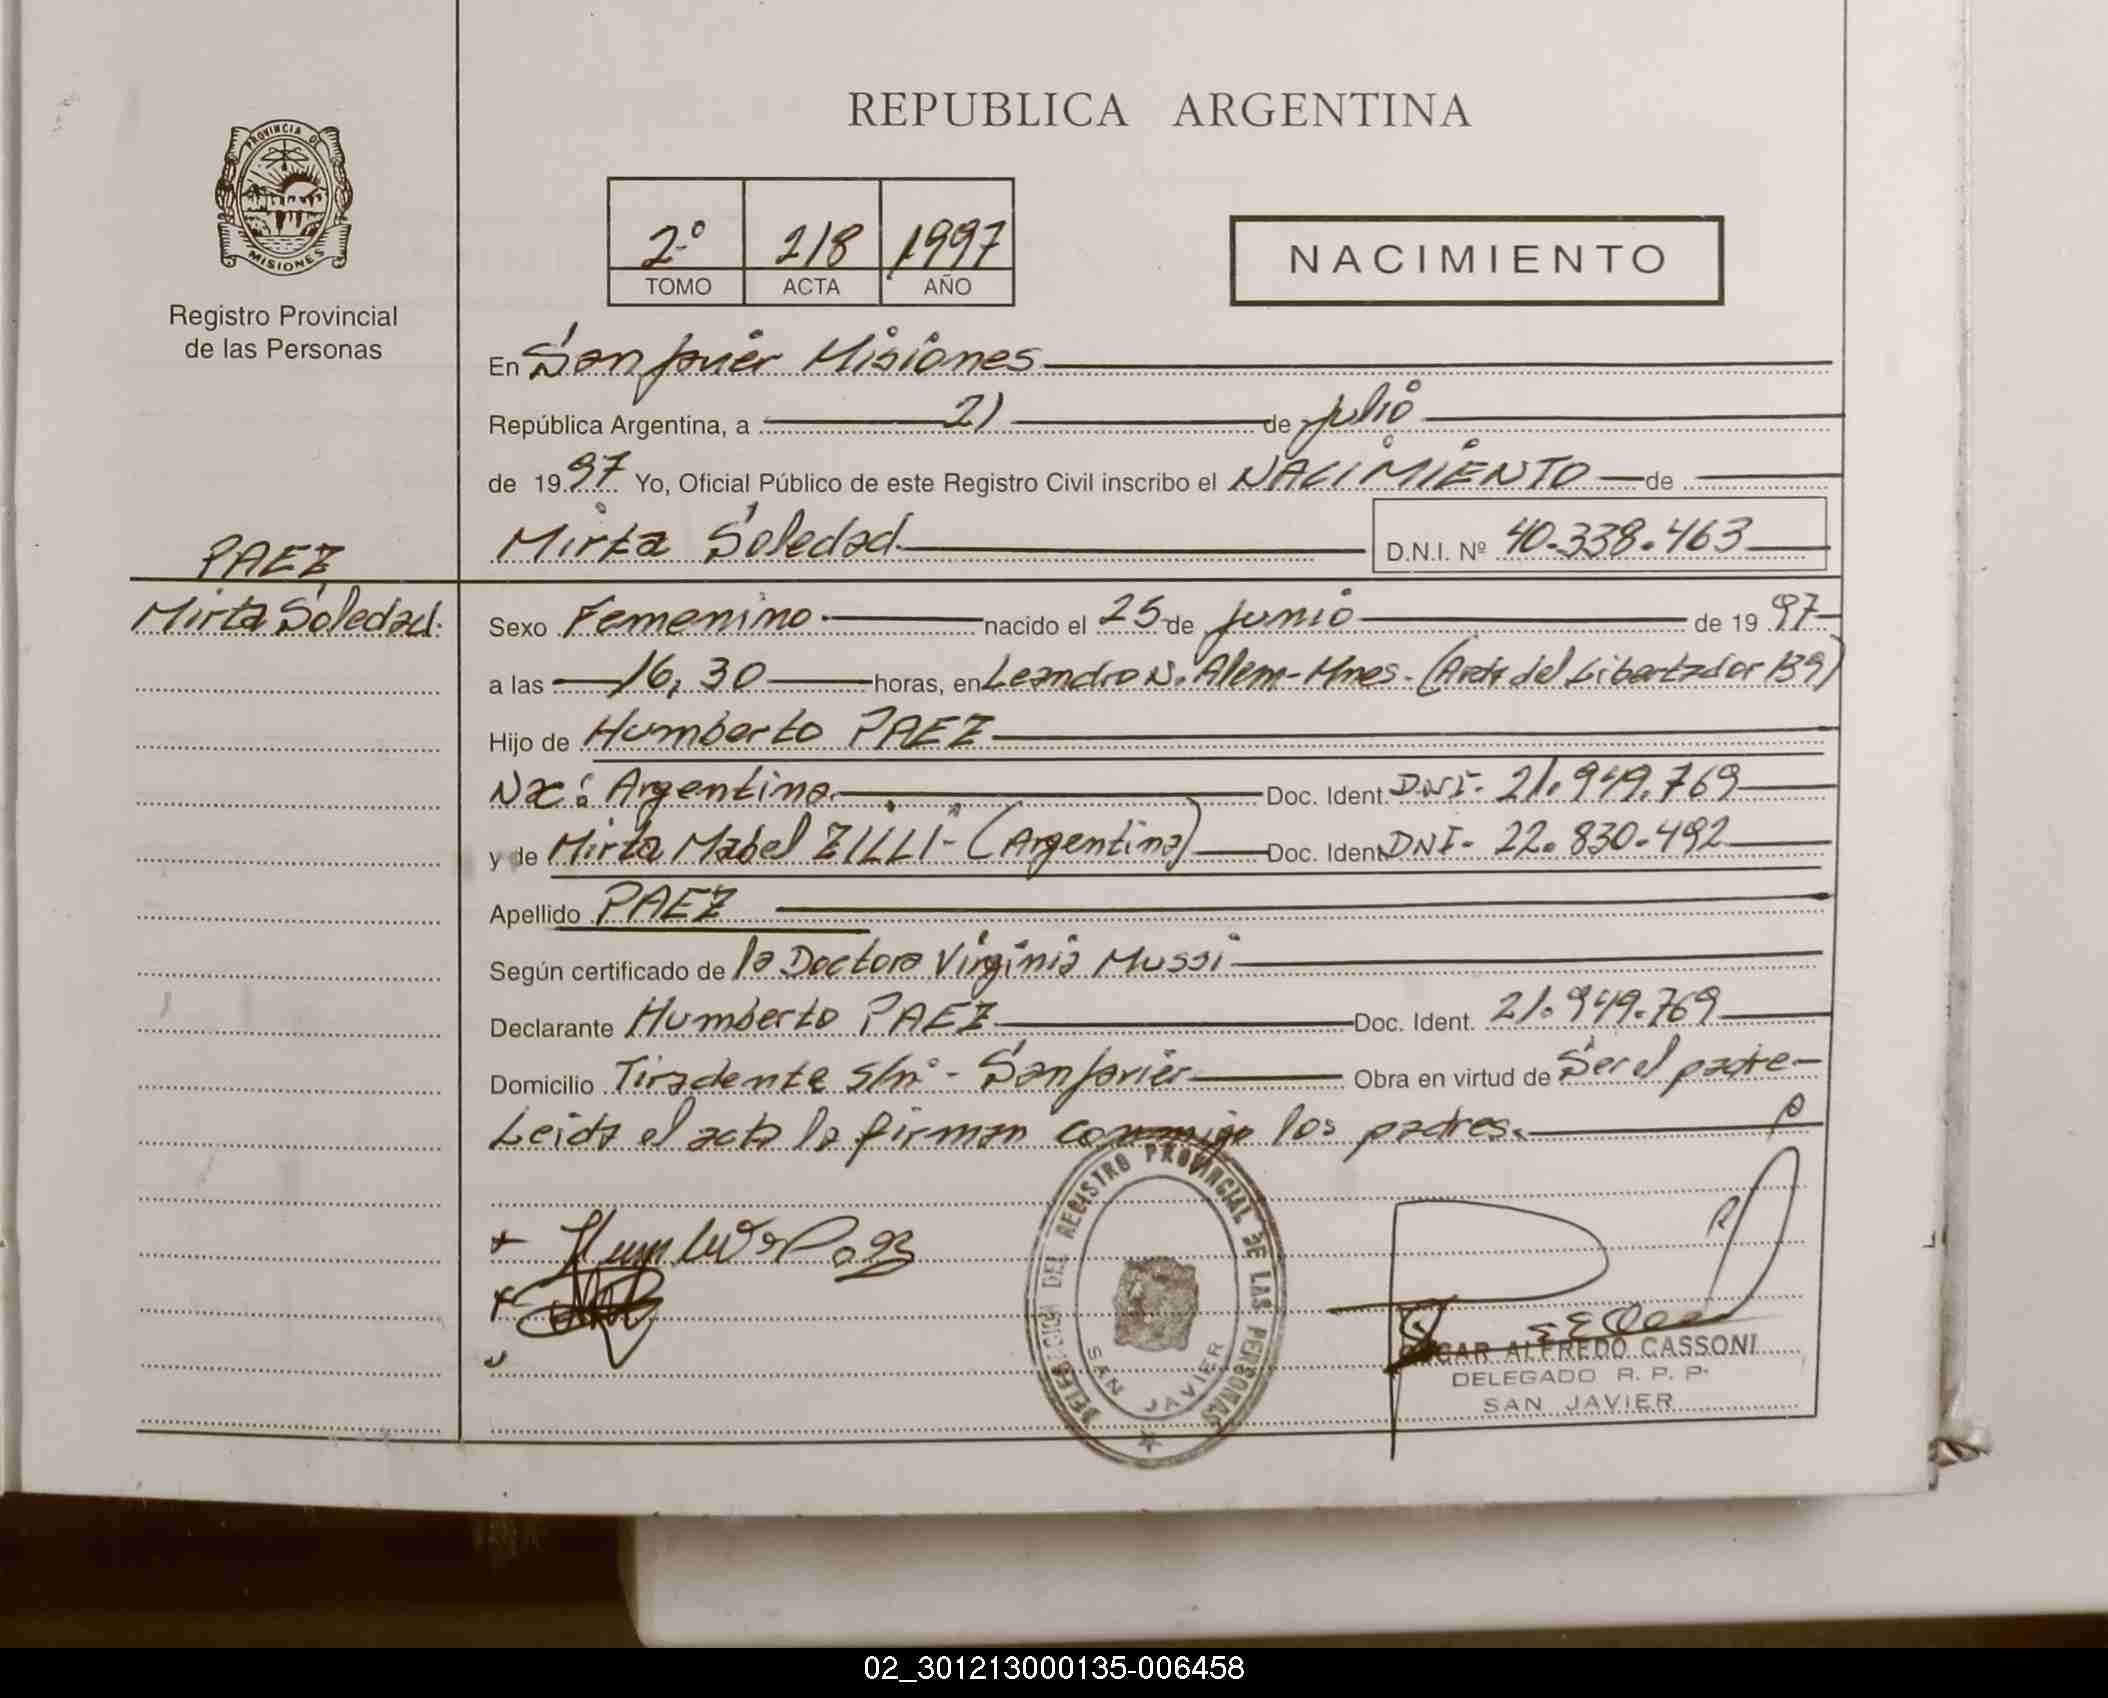 REPUBLICA ARGENTINA
PROVINCIA DE
MISIONES
Registro Provincial
de las Personas
2º 218 1997
TOMO ACTA AÑO
NACIMIENTO
En San Javier Misiones
República Argentina, a 21 de julio
de 1997 Yo, Oficial Público de este Registro Civil inscribo el NACIMIENTO de
Mirta Soledad D.N.I. Nº 40.338.463
PAEZ
Mirta Soledad.
Sexo Femenino nacido el 25 de junio de 1997
a las 16,30 horas, en Leandro N. Alem-Mnes. (Avda del Libertador 139)
Hijo de Humberto PAEZ
Nac: Argentina Doc. Ident. DNI- 21.949.769
y de Mirta Mabel ZILLI- (Argentina) Doc. Ident DNI- 22.830.492
Apellido PAEZ
Según certificado de la Doctora Virginia Mussi
Declarante Humberto PAEZ Doc. Ident. 21.949.769
Domicilio Tiradente s/nº - San Javier Obra en virtud de Ser el padre-
Leida el acta la firman conmigo los padres.
DELEGACION DEL REGISTRO PROVINCIAL DE LAS PERSONAS
SAN JAVIER
OSCAR ALFREDO CASSONI
DELEGADO R. P. P.
SAN JAVIER
02_301213000135-006458